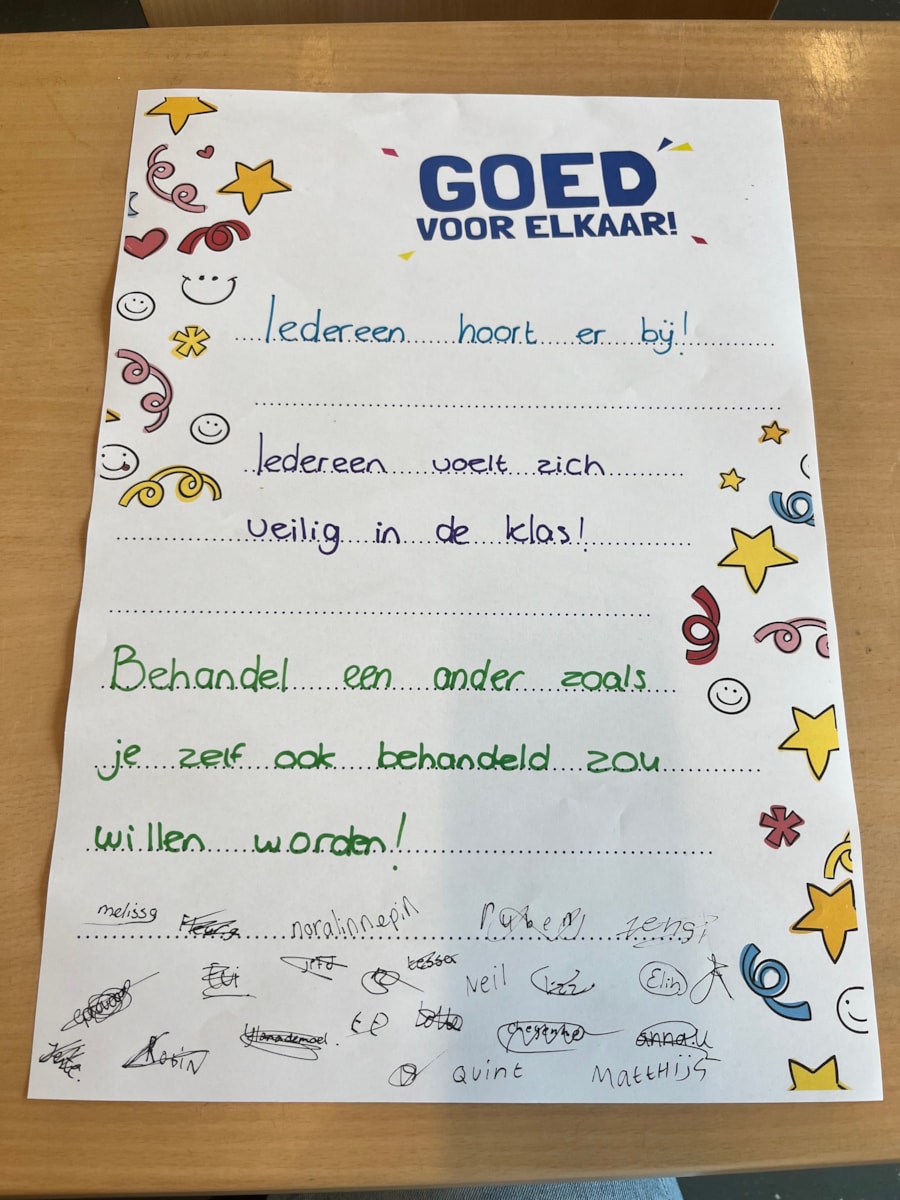 GOED
VOOR ELKAAR!
Iedereen hoort er bij!
Iedereen voelt zich
veilig in de klas!
Behandel een ander zoals
je zelf ook behandeld zou
willen worden!
melissa noralinnepin ruben
tesser
Neil Elin
Lotte
Robin Hanademoel anna.u
QUINT MATTHIJS